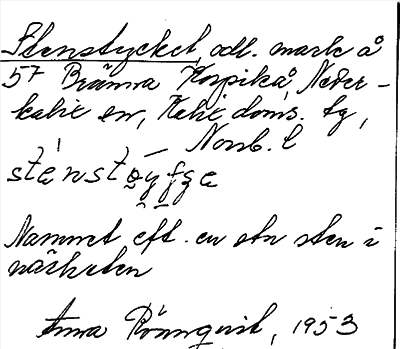 Stenstycket, odl. mark å
57 Bränna Korpikå, Neder-
kalix sn, Kalix doms. tg,
Norrb. l
Namnet eft. en stor sten i
närheten
Anna Rönnqvist, 1953